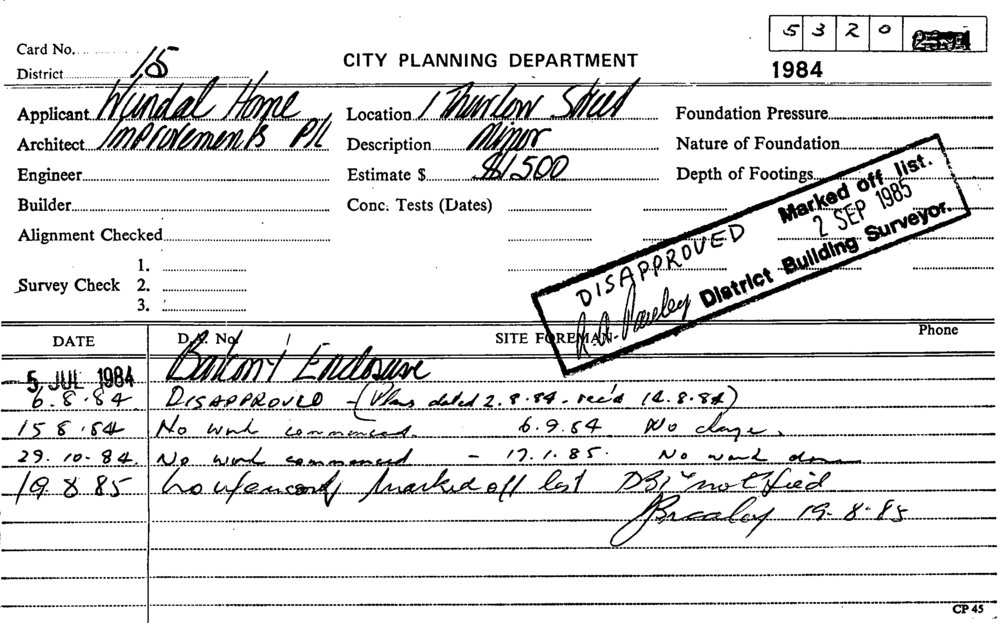 5 3 2 0
Card No.
District 15
CITY PLANNING DEPARTMENT
1984
Applicant Wundal Home
Location 1 Thurlow Street
Foundation Pressure
Architect Improvements P/L
Description Minor
Nature of Foundation
Engineer
Estimate $ $1,500
Depth of Footings
Builder
Conc. Tests (Dates)
Alignment Checked
Survey Check 1.
2.
3.
DISAPPROVED Marked off list.
2 SEP 1985
District Building Surveyor.
DATE D.A. No. SITE FOREMAN Phone
5 JUL 1984 Balcony Enclosure
6.8.84 DISAPPROVED - (Plans dated 2.8.84 - rec'd 14.8.84)
15 8.84 No work commenced. 6.9.84 No change.
29.10.84 No work commenced - 17.1.85. No work done
19 8 85 marked off list DBS notified
19-8-85
CP 45